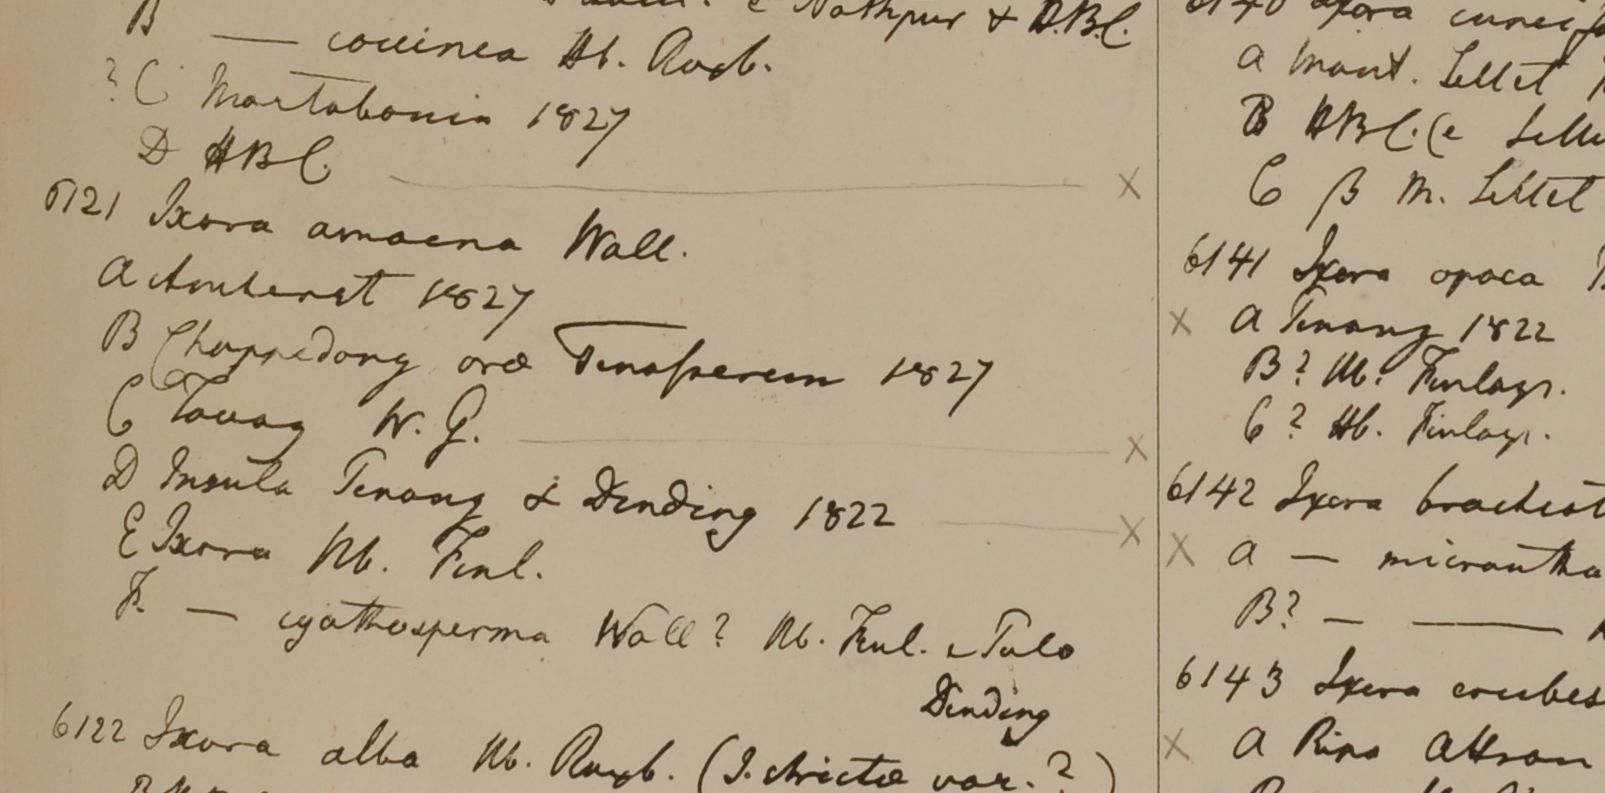 B — coccinea Hb. Roxb.
e Nathpur & H.B.C.
? C Martabania 1827
D HBC
6121 Ixora amaena Wall.
A Amherst 1827
B Chappedong oræ Tenasserim 1827
C Tavay W. G. X
D Insula Penang & Dinding 1822 X
E Ixora Hb. Finl.
F. — cyathosperma Wall? Hb. Finl. e Pulo
Dinding
6122 Ixora alba Hb. Roxb. (I. stricta var. ?)
6140 Ixora
A Mont. Sillet
B HBC. (e
C β M. Sillet
6141 Ixora opaca
X A Penang 1822
B? Hb. Finlays.
C? Hb. Finlays.
6142 Ixora
X a — micrantha
B? — —
6143 Ixora
X A Ripa Attran